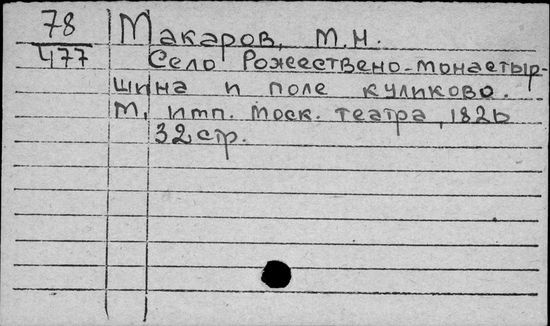 78
477
Макаров, М.Н.
Село Рожествено-монастыр-
щина и поле куликово.
М, имп. моск. театра, 1826
32 стр.